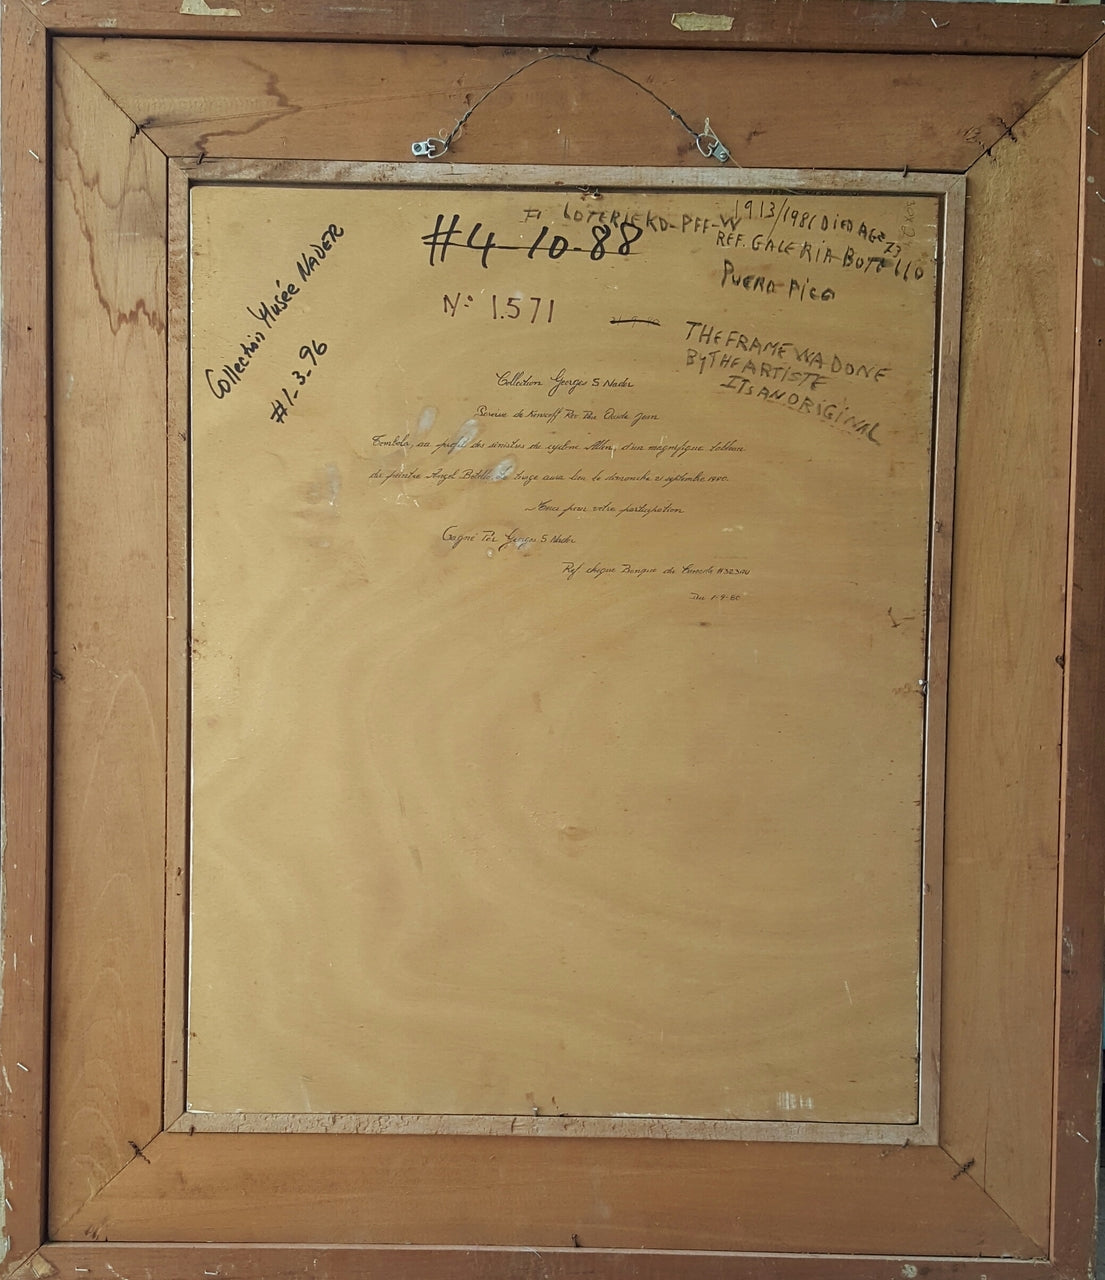 Collection Musée NADER
#1-3-96
LOTERIE
1913/1986 DIED AGE 73
#4-10-88
REF. GALERIA BOTELLO
PUERO RICO
No 1.571
THE FRAME WA DONE
BY THE ARTISTE
ITS AN ORIGINAL
Collection Georges S Nader
Jean
Tombola au profit des sinistrés du cyclone Allen, d'un magnifique tableau
du peintre Angel Botello. Le tirage aura lieu le dimanche 21 septembre 1980.
Merci pour votre participation
Gagné Par Georges S Nader
Ref cheque Banque du Canada
Du 1-9-80